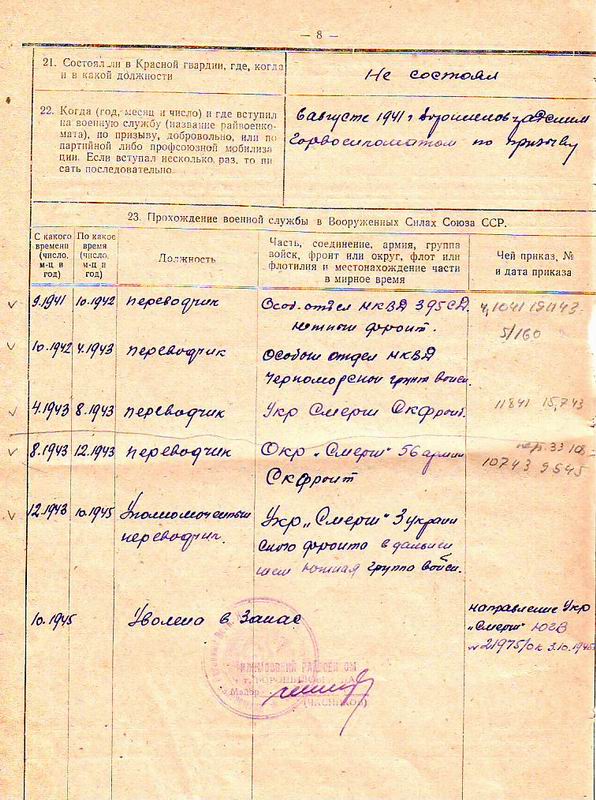 — 8 —
21. Состояли ли в Красной гвардии, где, когда
и в какой должности
Не состоял
22. Когда (год, месяц и число) и где вступил
на военную службу (название райвоенко-
мата), по призыву, добровольно, или по
партийной либо профсоюзной мобилиза
ции. Если вступал несколько раз, то пи
сать последовательно
6 августе 1941 г Ворошиловградским
Горвоенкоматом по призыву
23. Прохождение военной службы в Вооруженных Силах Союза ССР.
С какого
времени
(число,
м-ц и
год)
По какое
время
(число,
м-ц и
год)
Должность
Часть, соединение, армия, группа
войск, фронт или округ, флот или
флотилия и местонахождение части
в мирное время
Чей приказ, №
и дата приказа
9.1941 10.1942 переводчик Особ. отдел НКВД 395 СД.
южный фронт.
5/160
10.1942 4.1943 переводчик Особый отдел НКВД
Черноморской группы войск.
4.1943 8.1943 переводчик Укр Смерш Ск фронт. 11841 15,743
8.1943 12.1943 переводчик Окр „Смерш" 56 армии
Ск фронт
10743 9545
12.1943 10.1945 Уполномоченный
переводчик.
Укр „Смерш" 3 украин
ского фронта в дальней
шем южная группа войск.
10.1945 Уволена в Запас
направление Укр
„Смерш" ЮГВ
№ 21975/ок 3.10.1945
Майор
(ЧАСНИКОВ)